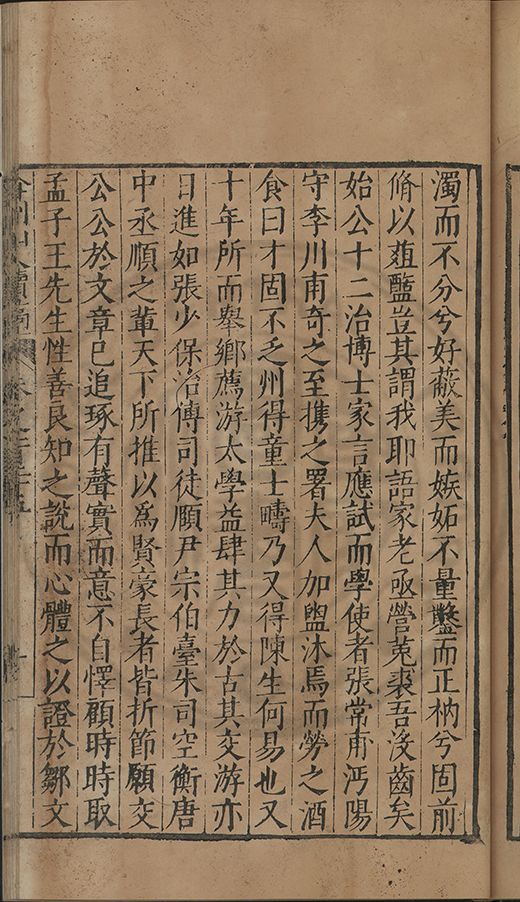 濁而不分兮好蔽美而嫉妬不量鑿而正枘兮固前
脩以菹醢豈其謂我耶語家老亟營菟裘吾沒齒矣
始公十二治博士家言應試而學使者張常甫沔陽
守李川甫奇之至携之署夫人加盥沐焉而勞之酒
食曰才固不乏州得童士疇乃又得陳生何易也又
十年所而舉鄉薦游太學益肆其力於古其交游亦
日進如張少保治傅司徒頤尹宗伯臺朱司空衡唐
中丞順之輩天下所推以為賢豪長者皆折節願交
公公於文章已追琢有聲實而意不自懌顧時時取
孟子王先生性善良知之說而心體之以證於鄒文
弇州山人續稿 卷之一百三十五